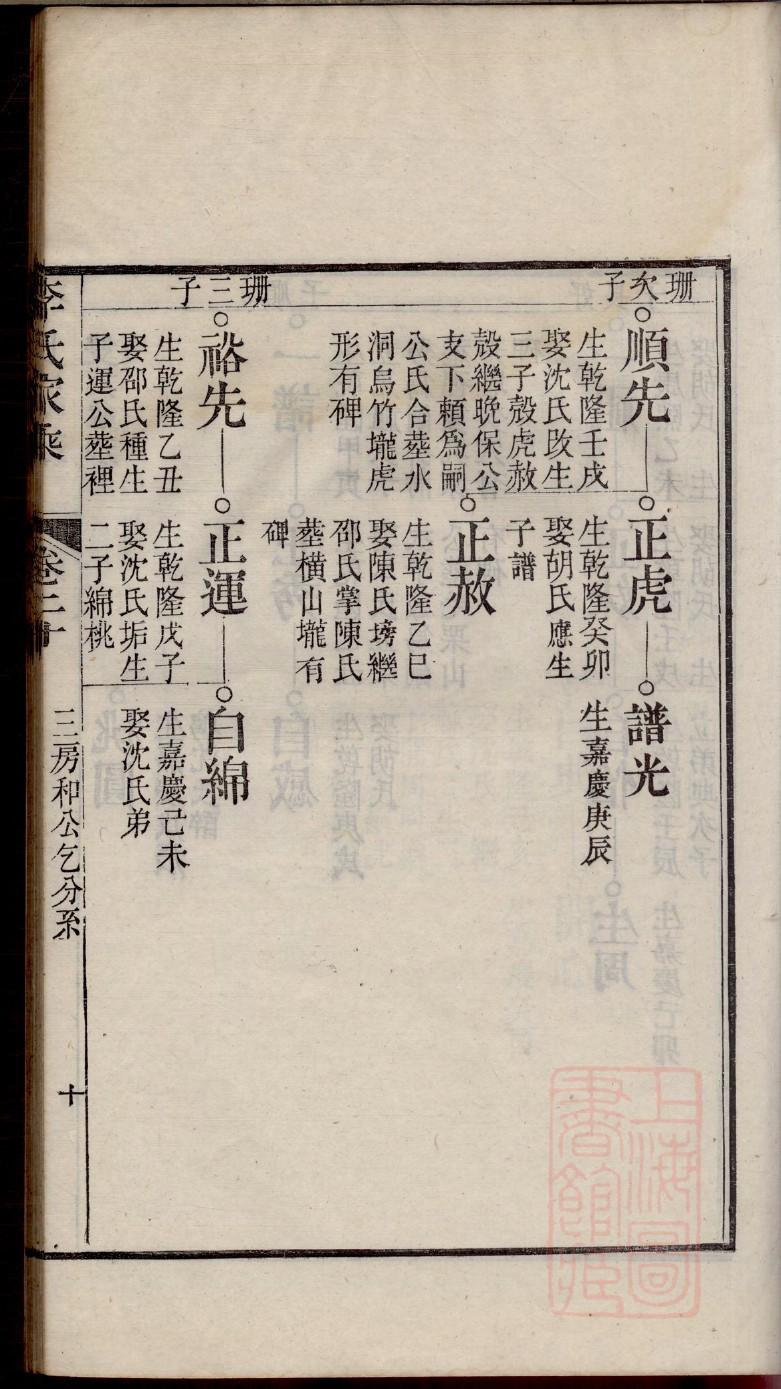 珊次子
順先
生乾隆壬戌
娶沈氏改生
三子殼虎赦
殼繼晩保公
支下賴為嗣
公氏合塟水
洞烏竹壠虎
形有碑
正虎
生乾隆癸卯
娶胡氏應生
子譜
譜光
生嘉慶庚辰
正赦
生乾隆乙巳
娶陳氏塝繼
邵氏掌陳氏
塟橫山壠有
碑
珊三子
裕先
生乾隆乙丑
娶邵氏種生
子運公塟裡
正運
生乾隆戊子
娶沈氏垢生
二子綿桃
自綿
生嘉慶己未
娶沈氏弟
李氏家乘
卷二十
三房和公乞分系
十
上海圖書館藏